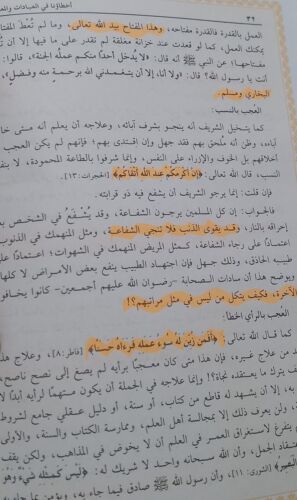 ٣٩ أخطاؤنا في العبادات والمعا
العمل بالقدرة فالقدرة مفتاحه، وهذا المفتاح بيد الله تعالى، وما لم تُعْطَ المفتا
يمكنك العمل، كما لو قعدت عند خزانة مغلقة لم تقدر على ما فيها إلا أن تُ
مفتاحها؛ عن النبي ﷺ أنه قال: «لا يُدخل أحدًا منكم عملُه الجنة»، قالوا:
أنت يا رسول الله؟ قال: «ولا أنا، إلا أن يتغمدني الله برحمةٍ منه وفضلٍ»،
البخاري ومسلم.
العُجب بالنسب:
كما يتخيل الشريف أنه ينجو بشرف آبائه، وعلاجه أن يعلم أنه متى خا
آباءه، وظن أنه ملحق بهم فقد جهل وإن اقتدى بهم؛ فإنهم لم يكن العجب
أخلاقهم بل الخوف والإزراء على النفس، وإنما شرفوا بالطاعة المحمودة، لا بنفـ
النسب، قال الله تعالى: ﴿إن أكرمكم عند الله أتقاكم﴾ [الحجرات: ١٣].
فإن قلت: إنما يرجو الشريف أن يشفع فيه ذو قرابته.
فالجواب: إن كل المسلمين يرجون الشفاعة، وقد يُشْفَعُ في الشخص بعد
إحراقه بالنار، وقد يقوى الذنب فلا تنجي الشفاعة، ومثل المنهمك في الذنوب
اعتمادًا على رجاء الشفاعة، كمثل المريض المنهمك في الشهوات؛ اعتمادًا على
طبيبه الحاذق، وذلك جهل فإن اجتهاد الطبيب ينفع بعض الأمراض لا كلها
ويوضح هذا أن سادات الصحابة -رضوان الله عليهم أجمعين- كانوا يخافو
الآخرة، فكيف يتكل من ليس في مثل مراتبهم؟!
العجب بالرأي الخطأ:
كما قال الله تعالى: ﴿أَفَمَن زُيِّنَ لَهُ سُوءُ عَمَلِهِ فَرَءَاهُ حَسَنًا﴾ [فاطر: ٨]، وعلاج هذا
من علاج غيره، فإن هذا متى كان معجبًا برأيه لم يصغ إلى نصح ناصح،
يف يترك ما يعتقده نجاة؟! وإنما علاجه في الجملة أن يكون متهمًا لرأيه أبدًا لا
به، إلا أن يشهد له قاطع من كتاب، أو سنة، أو دليل عقلي جامع لشروط
ولن يعرف ذلك إلا بمجالسة أهل العلم، وممارسة الكتاب والسنة، والأولى
م يتفرغ لاستغراق العمر في العلم أن لا يخوض في المذاهب، ولكن يقف
عتقاد الجمل، وأن الله سبحانه واحد لا شريك له: ﴿لَيْسَ كَمِثْلِهِ شَيْءٌ وَهُوَ
الْبَصِيرُ﴾ [الشورى: ١١]، وأن رسول الله ﷺ صادق فيما جاء به،